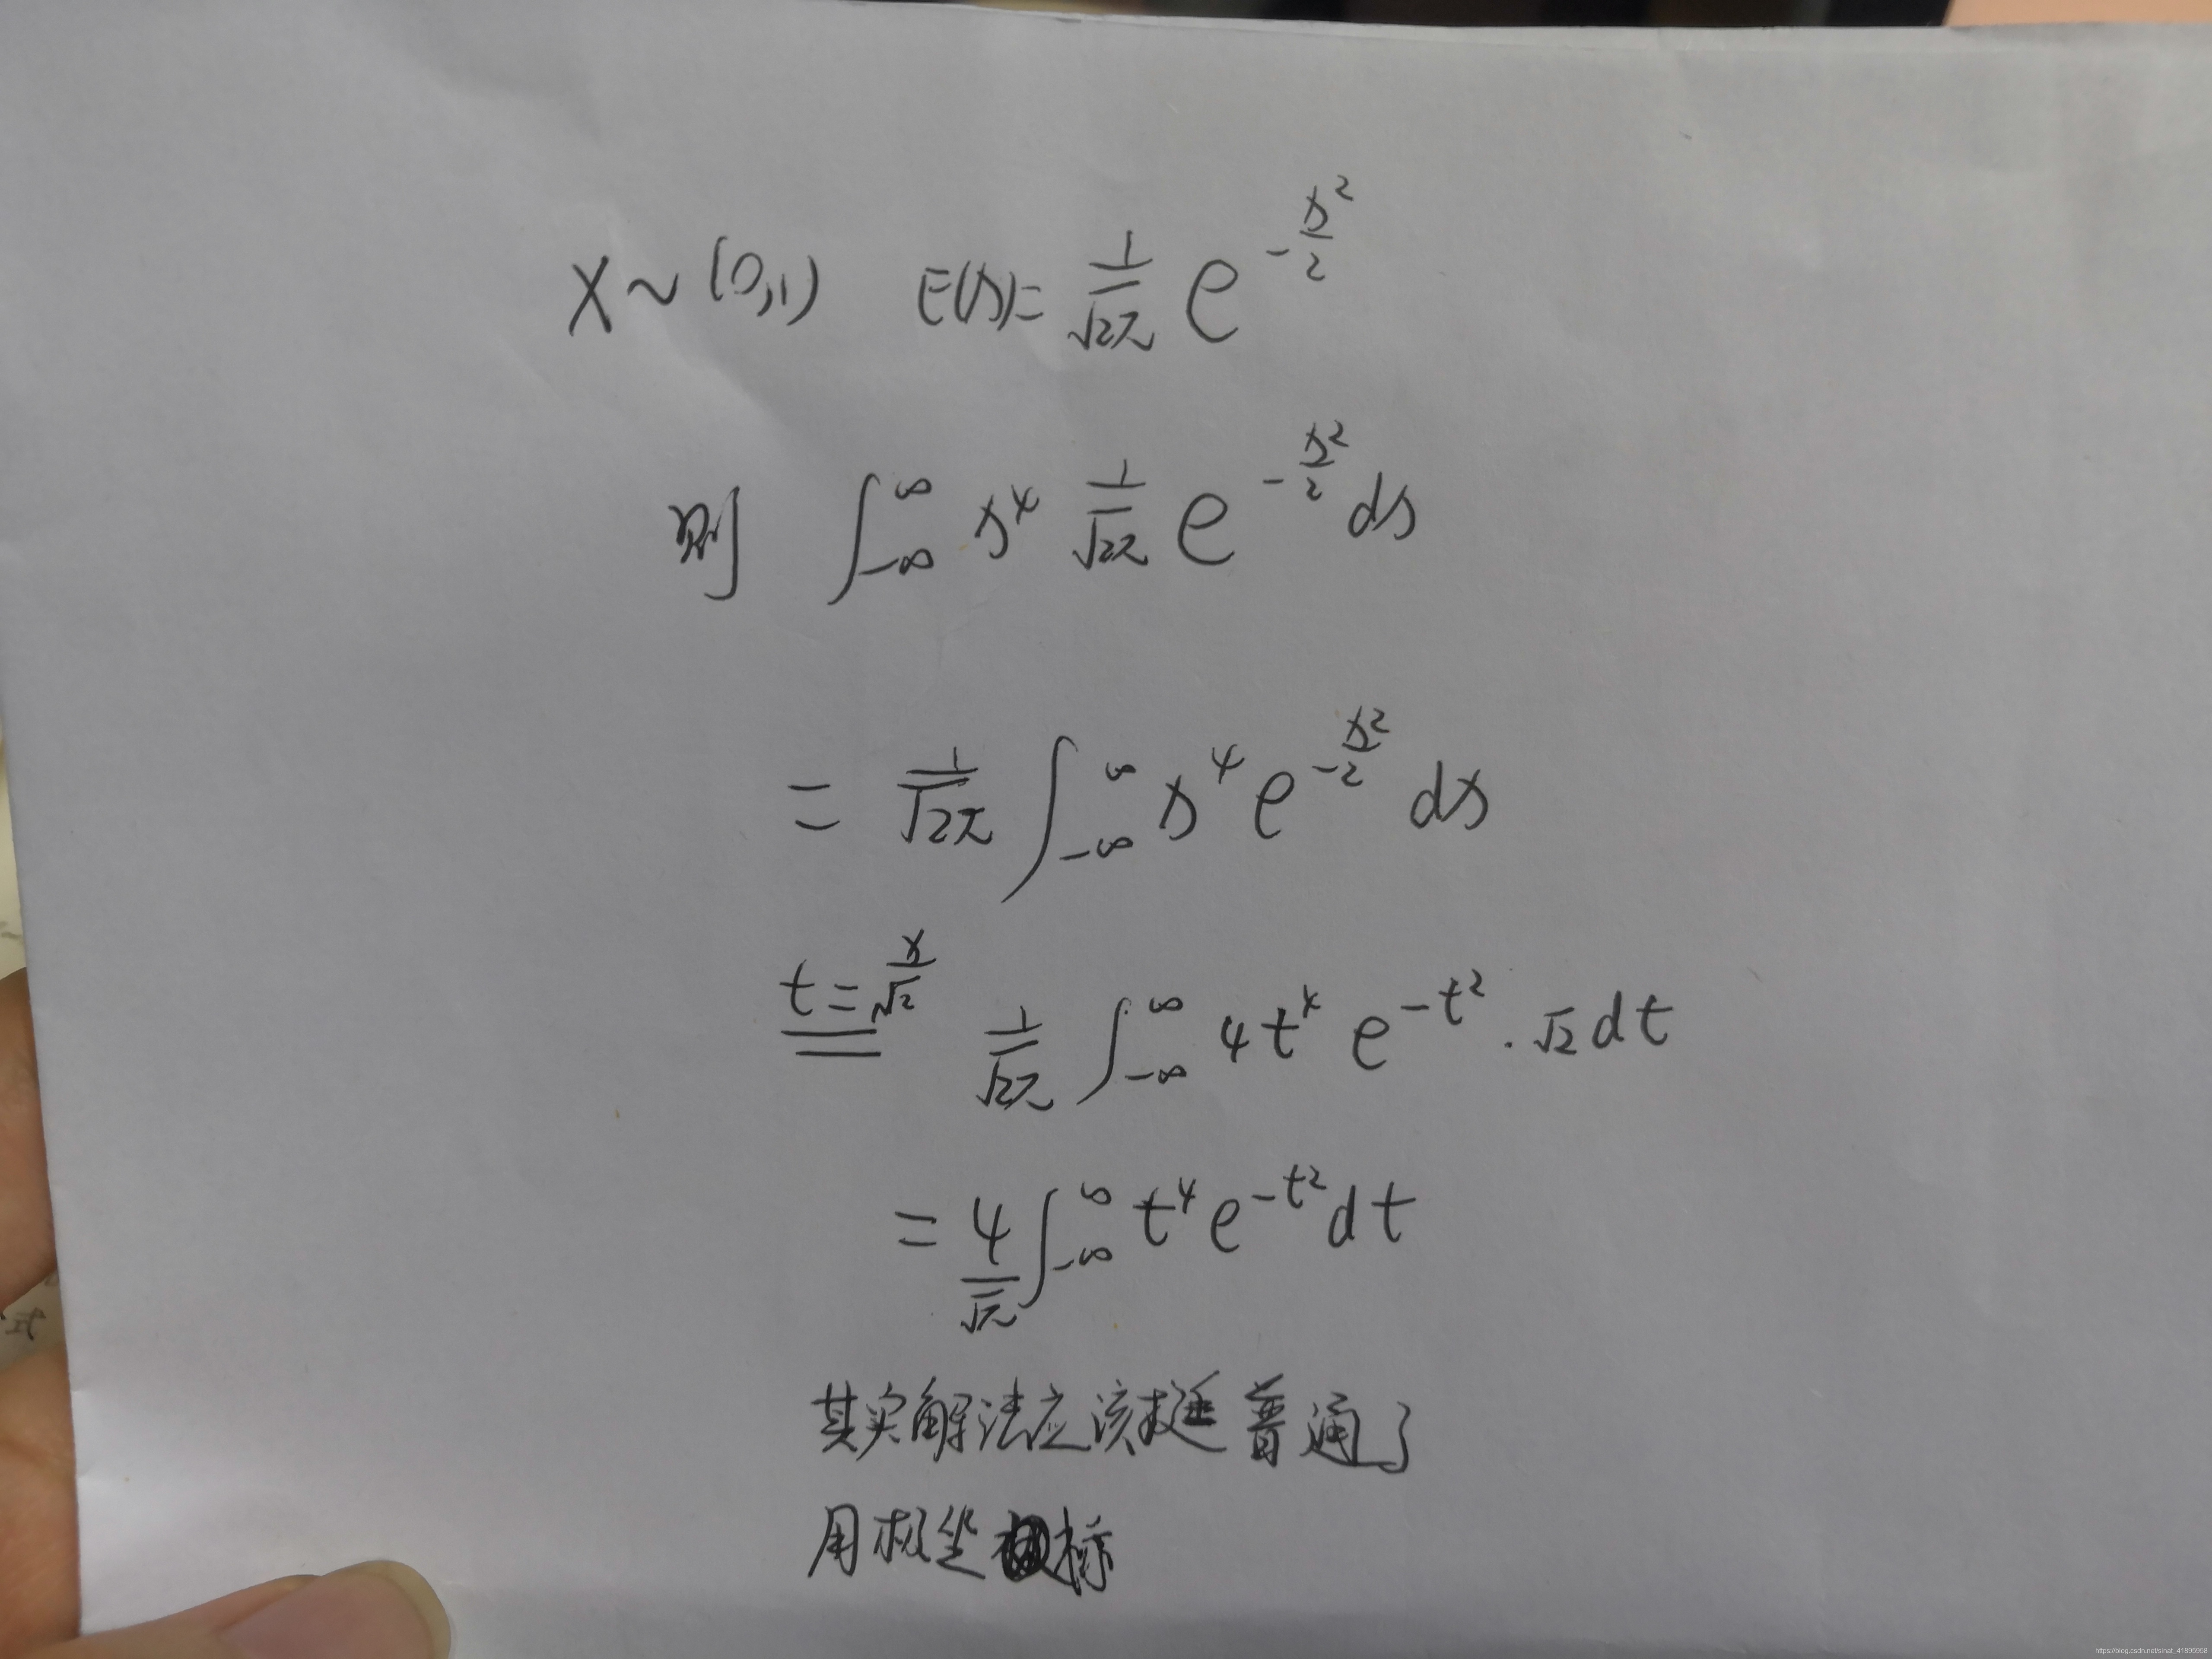 X ~ (0,1) E(x)= 1/√2π e^{-x²/2}
则 ∫_{-∞}^{∞} x⁴ 1/√2π e^{-x²/2} dx
= 1/√2π ∫_{-∞}^{∞} x⁴ e^{-x²/2} dx
t = x/√2 = 1/√2π ∫_{-∞}^{∞} 4t⁴ e^{-t²} · √2 dt
= 4/√π ∫_{-∞}^{∞} t⁴ e^{-t²} dt
其实解法应该挺普通了
用极坐标
式
https://blog.csdn.net/sinat_41895958